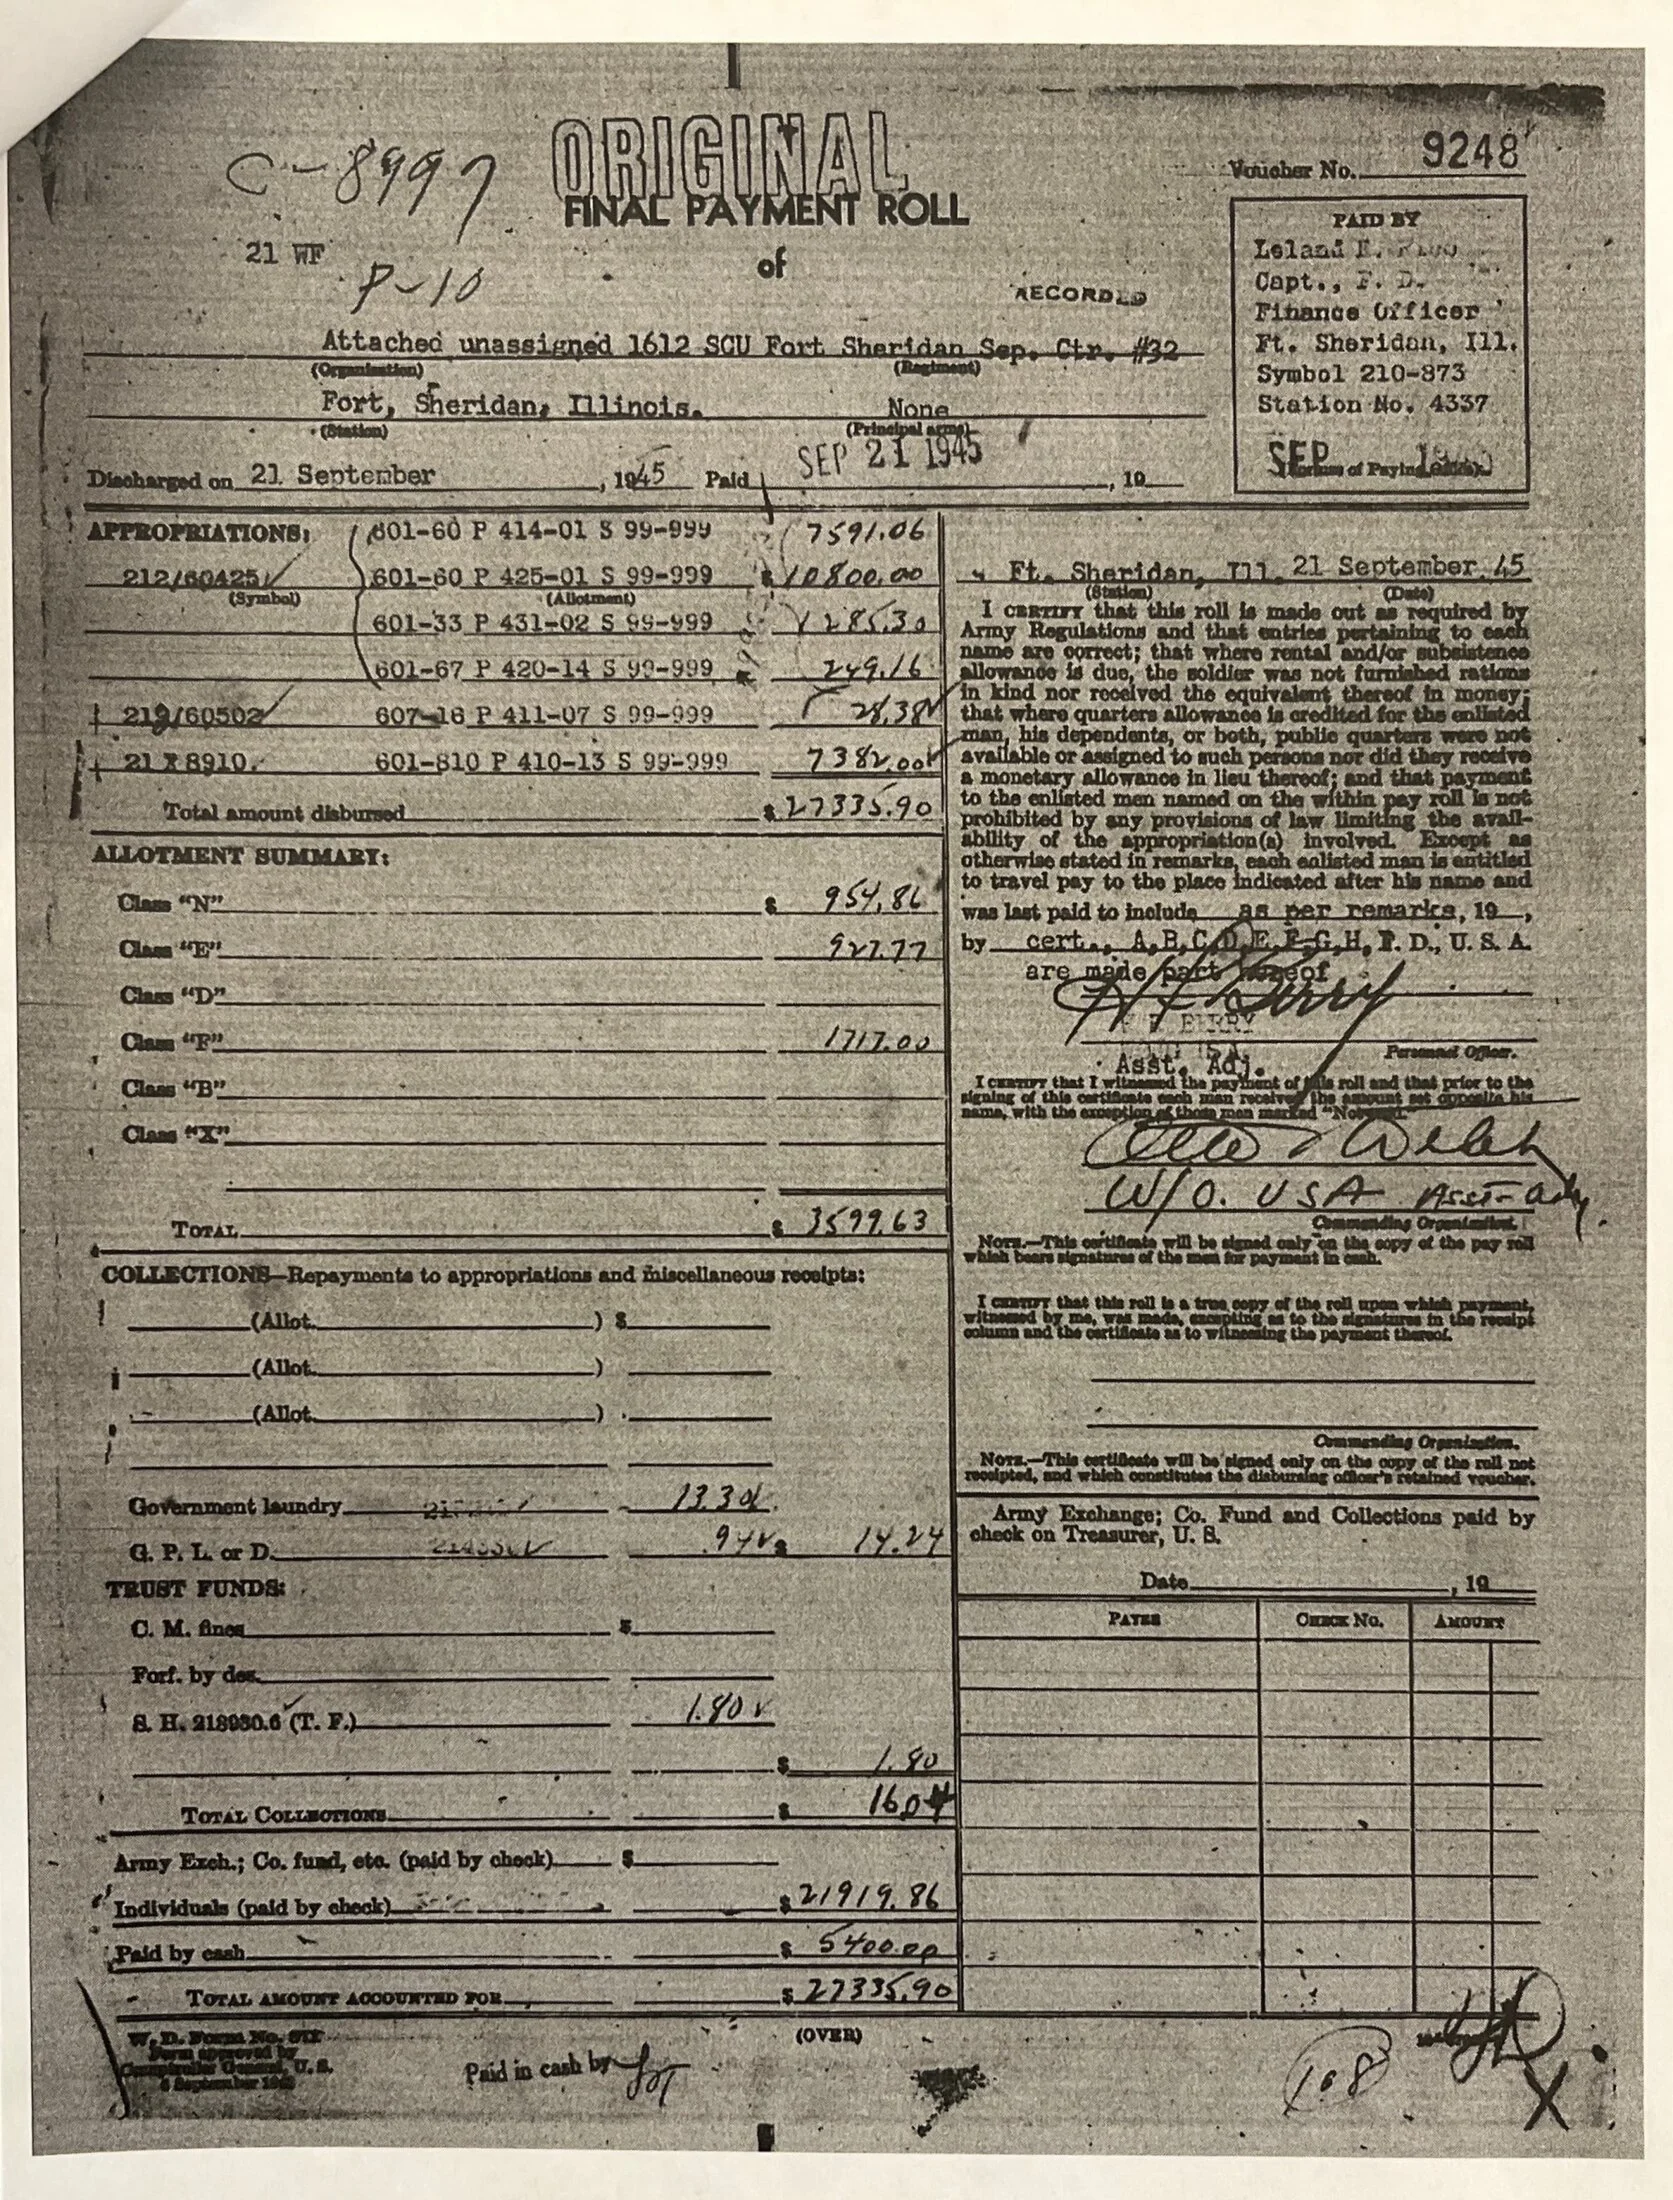 ORIGINAL
C-8997
Voucher No. 9248
FINAL PAYMENT ROLL
21 WF
of
P-10
RECORDED
PAID BY
Leland E.
Capt., F. D.
Finance Officer
Ft. Sheridan, Ill.
Symbol 210-873
Station No. 4337
SEP
Attached unassigned 1612 SCU Fort Sheridan Sep. Ctr. #32
(Organization) (Regiment)
Fort, Sheridan, Illinois. None
(Station) (Principal arms)
Discharged on 21 September, 1945 Paid SEP 21 1945, 19
APPROPRIATIONS: 601-60 P 414-01 S 99-999 7591.06
212/60425 601-60 P 425-01 S 99-999 $ 10800.00
(Symbol) (Allotment)
601-33 P 431-02 S 99-999 1285.30
601-67 P 420-14 S 99-999 249.16
212/60502 607-16 P 411-07 S 99-999 28.38
21X8910. 601-810 P 410-13 S 99-999 7382.00
Total amount disbursed $ 27335.90
ALLOTMENT SUMMARY:
Class "N" $ 954.86
Class "E" 927.77
Class "D"
Class "F" 1717.00
Class "B"
Class "X"
TOTAL $ 3599.63
COLLECTIONS—Repayments to appropriations and miscellaneous receipts:
(Allot. ) $
(Allot. )
(Allot. )
Government laundry 13.30
G. P. L. or D. .94 $ 14.24
TRUST FUNDS:
C. M. fines $
Forf. by des.
S. H. 218930.6 (T. F.) 1.80
$ 1.80
TOTAL COLLECTIONS $ 16.04
Army Exch.; Co. fund, etc. (paid by check) $
Individuals (paid by check) $ 21919.86
Paid by cash $ 5400.00
TOTAL AMOUNT ACCOUNTED FOR $ 27335.90
Ft. Sheridan, Ill. 21 September 45
(Station) (Date)
I CERTIFY that this roll is made out as required by
Army Regulations and that entries pertaining to each
name are correct; that where rental and/or subsistence
allowance is due, the soldier was not furnished rations
in kind nor received the equivalent thereof in money;
that where quarters allowance is credited for the enlisted
man, his dependents, or both, public quarters were not
available or assigned to such persons nor did they receive
a monetary allowance in lieu thereof; and that payment
to the enlisted men named on the within pay roll is not
prohibited by any provisions of law limiting the avail-
ability of the appropriation(s) involved. Except as
otherwise stated in remarks, each enlisted man is entitled
to travel pay to the place indicated after his name and
was last paid to include as per remarks, 19 ,
by cert., A,B,C,D,E,F,G,H, F. D., U. S. A.
are made part hereof
BERRY
Asst. Adj. Personnel Officer.
I CERTIFY that I witnessed the payment of this roll and that prior to the
signing of this certificate each man received the amount set opposite his
name, with the exception of those men marked "Not
W/O. USA Asst-Adj.
Commanding Organization.
NOTE.—This certificate will be signed only on the copy of the pay roll
which bears signatures of the men for payment in cash.
I CERTIFY that this roll is a true copy of the roll upon which payment,
witnessed by me, was made, excepting as to the signatures in the receipt
column and the certificate as to witnessing the payment thereof.
Commanding Organization.
NOTE.—This certificate will be signed only on the copy of the roll not
receipted, and which constitutes the disbursing officer's retained voucher.
Army Exchange; Co. Fund and Collections paid by
check on Treasurer, U. S.
Date , 19
PAYEE CHECK NO. AMOUNT
W. D. Form No.
Form approved by
Comptroller General, U. S.
Paid in cash by
(OVER)
108
X